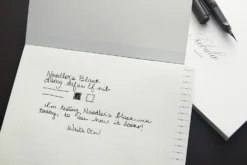 Noodler's Black
I'm testing Noodler's Black ink
today, to see how it looks!
Write On!